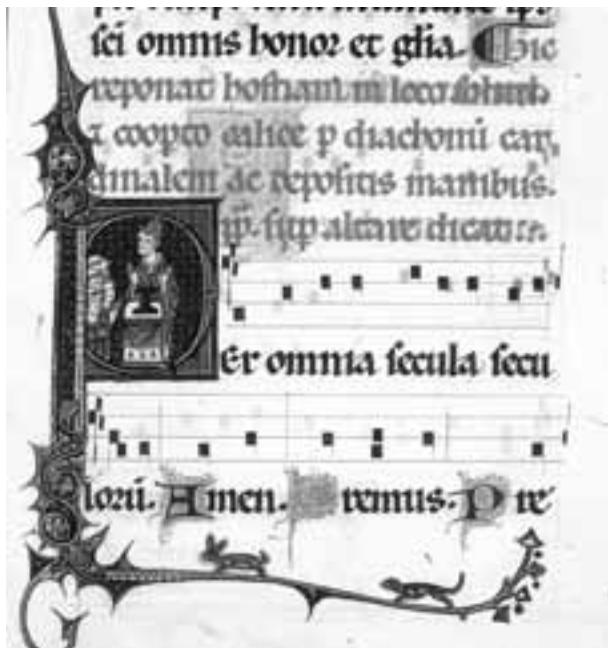 sci omnis honor et glia. Hic
reponat hostiam in loco
coopto calice p diachonū car
dinalem ac repositis manibus.
ip̄. sup altare dicat
Per omnia secula secu
lorū. Amen. Oremus. Pre